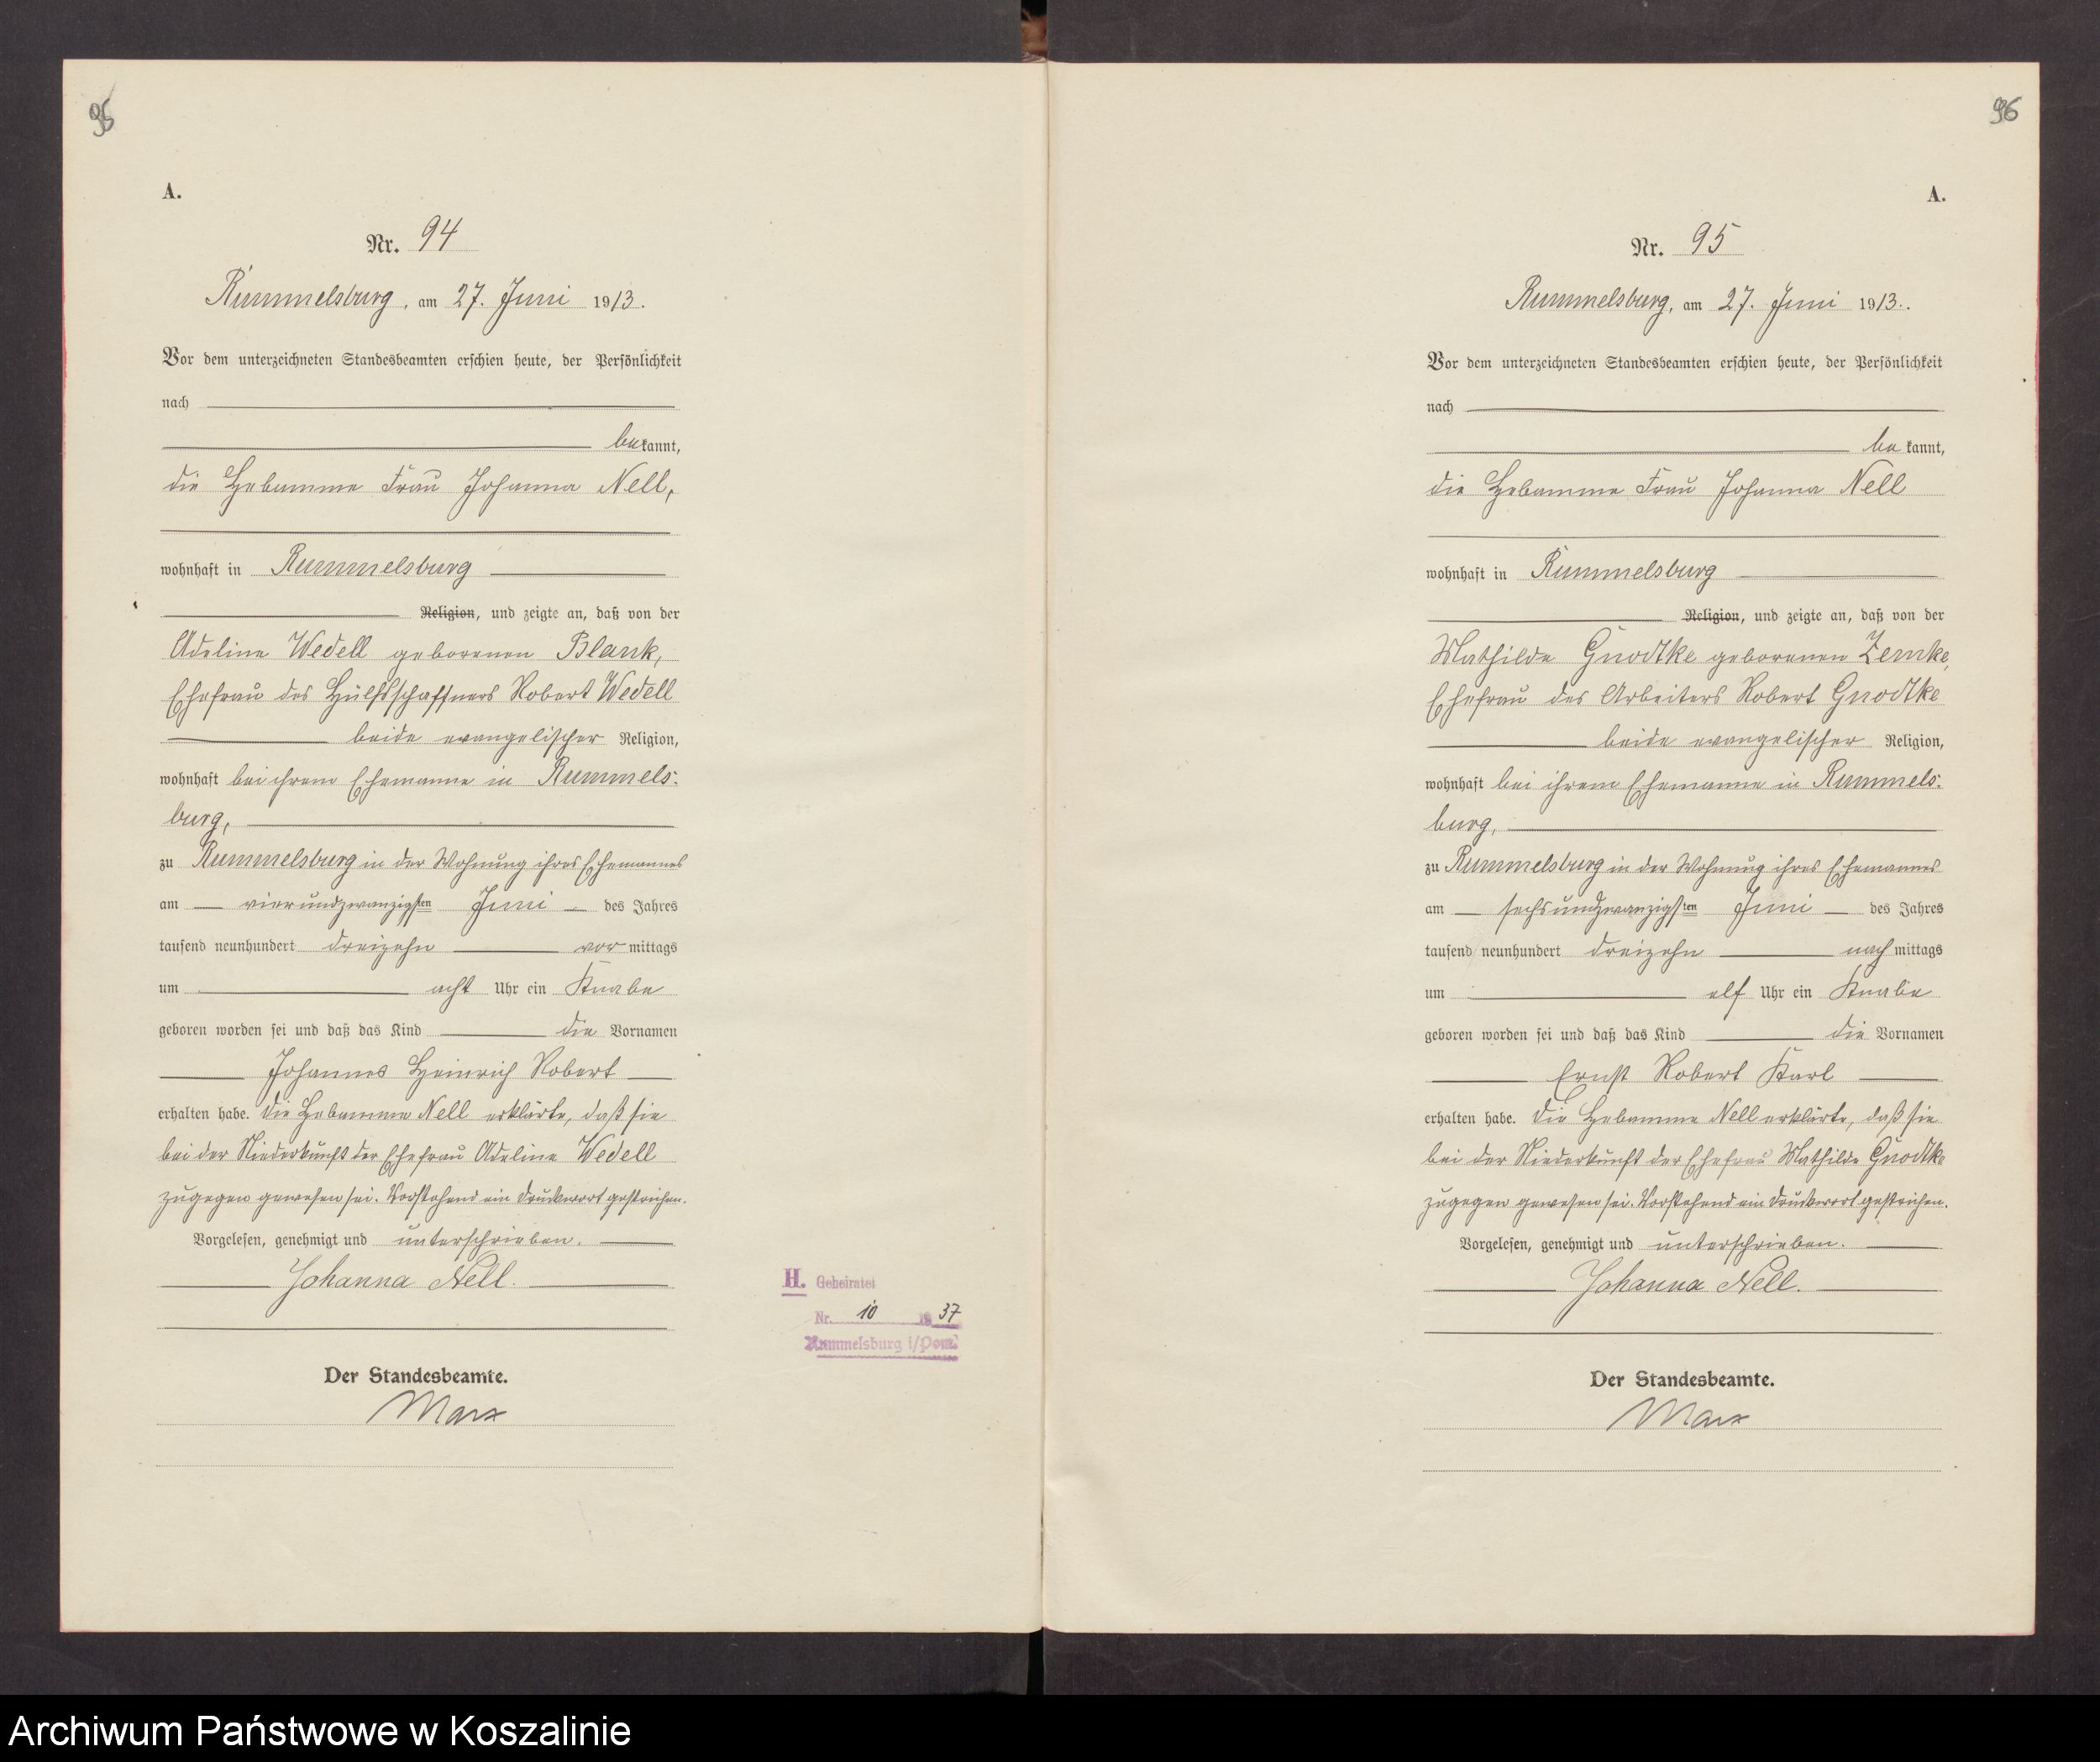 95
A.
Nr. 94
Rummelsburg, am 27. Juni 1913.
Vor dem unterzeichneten Standesbeamten erschien heute, der Persönlichkeit
nach
bekannt,
die Hebamme Frau Johanna Nell,
wohnhaft in Rummelsburg
Religion, und zeigte an, daß von der
Adeline Wedell geborenen Blank,
Ehefrau des Hülfsschaffners Robert Wedell
beide evangelischer Religion,
wohnhaft bei ihrem Ehemanne in Rummels:
burg,
zu Rummelsburg in der Wohnung ihres Ehemannes
am vierundzwanzigsten Juni des Jahres
tausend neunhundert dreizehn vormittags
um acht Uhr ein Knabe
geboren worden sei und daß das Kind die Vornamen
Johannes Heinrich Robert
erhalten habe. Die Hebamme Nell erklärte, daß sie
bei der Niederkunft der Ehefrau Adeline Wedell
zugegen gewesen sei. Vorstehend ein Druckwort gestrichen.
Vorgelesen, genehmigt und unterschrieben.
Johanna Nell.
Der Standesbeamte.
Marx
H. Geheiratet
Nr. 10 1937
Rummelsburg i/Pom.
96
A.
Nr. 95
Rummelsburg, am 27. Juni 1913.
Vor dem unterzeichneten Standesbeamten erschien heute, der Persönlichkeit
nach
bekannt,
die Hebamme Frau Johanna Nell
wohnhaft in Rummelsburg
Religion, und zeigte an, daß von der
Mathilde Gnodtke geborenen Zemke,
Ehefrau des Arbeiters Robert Gnodtke
beide evangelischer Religion,
wohnhaft bei ihrem Ehemanne in Rummels:
burg,
zu Rummelsburg in der Wohnung ihres Ehemannes
am sechsundzwanzigsten Juni des Jahres
tausend neunhundert dreizehn nachmittags
um elf Uhr ein Knabe
geboren worden sei und daß das Kind die Vornamen
Ernst Robert Karl
erhalten habe. Die Hebamme Nell erklärte, daß sie
bei der Niederkunft der Ehefrau Mathilde Gnodtke
zugegen gewesen sei. Vorstehend ein Druckwort gestrichen.
Vorgelesen, genehmigt und unterschrieben.
Johanna Nell.
Der Standesbeamte.
Marx
Archiwum Państwowe w Koszalinie